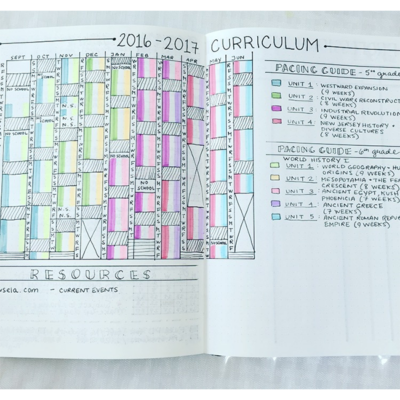 2016-2017 CURRICULUM
SEPT OCT NOV DEC JAN FEB MAR APR MAY JUN
NO SCHOOL
NO SCHOOL
NO SCHOOL
N.S.
N.S.
NO SCHOOL
N.S.
N.S.
RESOURCES
.com - CURRENT EVENTS
PACING GUIDE - 5th grade
UNIT 1 : WESTWARD EXPANSION
(9 WEEKS)
UNIT 2 : CIVIL WAR & RECONSTRUC
(9 WEEKS)
UNIT 3 : INDUSTRIAL REVOLUTION
(9 WEEKS)
UNIT 4 : NEW JERSEY HISTORY +
DIVERSE CULTURES
(8 WEEKS)
PACING GUIDE - 6th grade
WORLD HISTORY I
UNIT 1 : WORLD GEOGRAPHY + HU
ORIGINS (9 WEEKS)
UNIT 2 : MESOPOTAMIA + THE FE
CRESCENT (8 WEEKS)
UNIT 3 : ANCIENT EGYPT, KUSH
PHOENICIA (7 WEEKS)
UNIT 4 : ANCIENT GREECE
(7 WEEKS)
UNIT 5 : ANCIENT ROMAN REPU
EMPIRE (9 WEEKS)